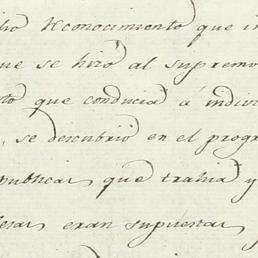 dio Reconocimiento que in
que se hizo al supremo
to que conducia á indivi
, se descubrió en el progr
publicas, que trahia y
esas eran supuestas, y